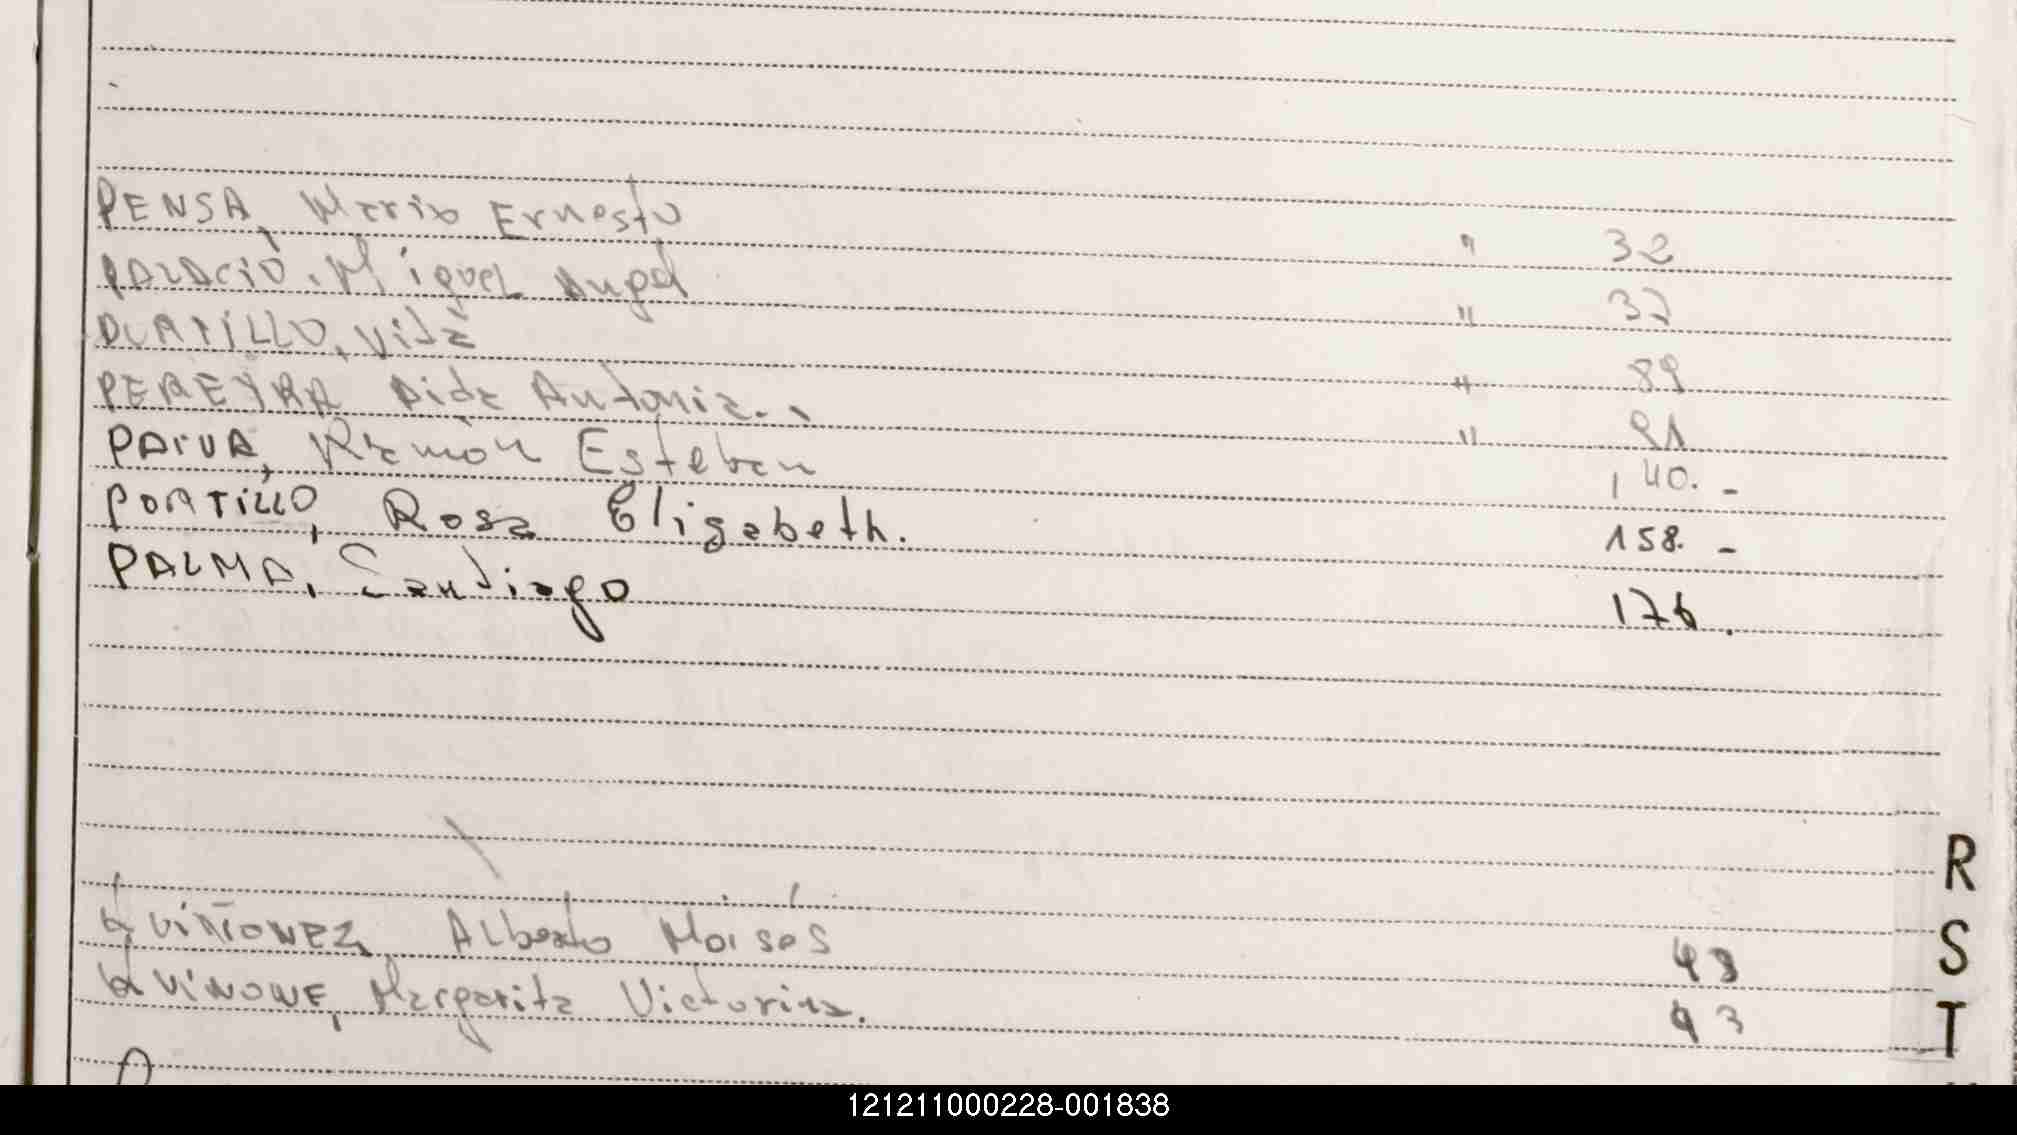 PENSA, Mario Ernesto " 32
PALACIO. Miguel Angel " 37
PORTILLO, Vida " 89
PEREYRA Aida Antonia. " 91
PAIVA, Ramón Esteban 140. -
PORTILLO, Rosa Elizabeth. 158. -
PALMA, Santiago 176.
R
QUIÑONEZ, Alberto Moisés 49
S
QUINONE, Margarita Victoria. 93
T
121211000228-001838